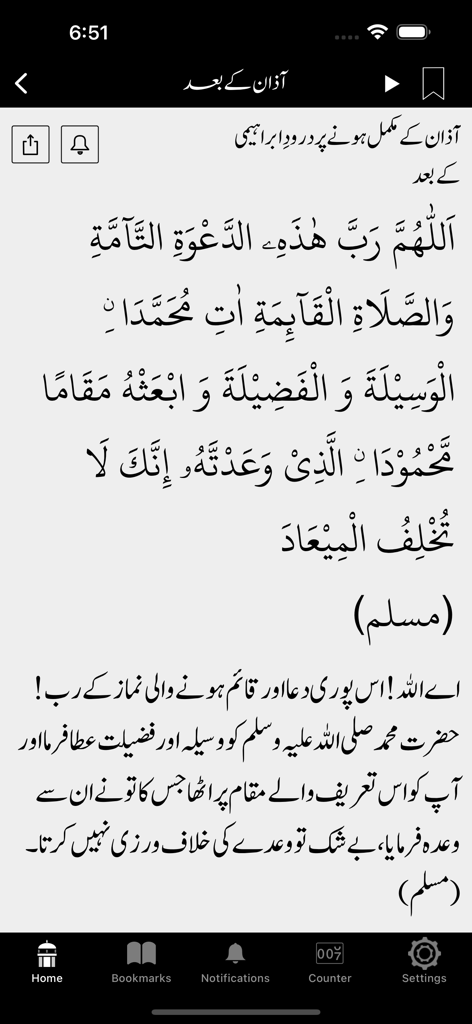 6:51
آذان کے بعد
آذان کے مکمل ہونے پر درودِ ابراہیمی
کے بعد
اَللّٰهُمَّ رَبَّ هٰذَهِۦ الدَّعْوَةِ التَّآمَّةِ
وَالصَّلَاةِ الْقَآئِمَةِ اٰتِ مُحَمَّدَا ۨنِ
الْوَسِيْلَةَ وَ الْفَضِيْلَةَ وَ ابْعَثْهُ مَقَامًا
مَّحْمُوْدَا ۨنِ الَّذِىْ وَعَدْتَّهُۥ إِنَّكَ لَا
تُخْلِفُ الْمِيْعَادَ
(مسلم)
اے اللہ! اس پوری دعا اور قائم ہونے والی نماز کے رب!
حضرت محمد صلی اللہ علیہ وسلم کو وسیلہ اور فضیلت عطا فرما اور
آپ کو اس تعریف والے مقام پر اٹھا جس کا تو نے ان سے
وعدہ فرمایا، بے شک تو وعدے کی خلاف ورزی نہیں کرتا۔
(مسلم)
007
Home Bookmarks Notifications Counter Settings